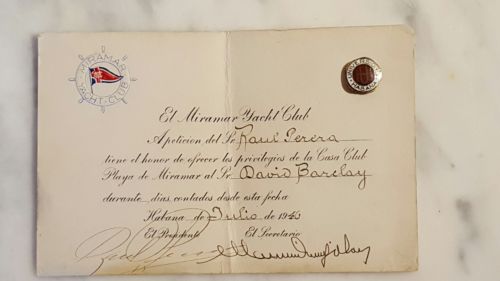 MIRAMAR
YACHT CLUB
El Miramar Yacht Club
A peticion del Sr. Raul Perera
tiene el honor de ofrecer los privilegios de la Casa Club
Playa de Miramar al Sr. David Barclay
durante dias, contados desde esta fecha
Habana de Julio de 1943
El Presidente El Secretario